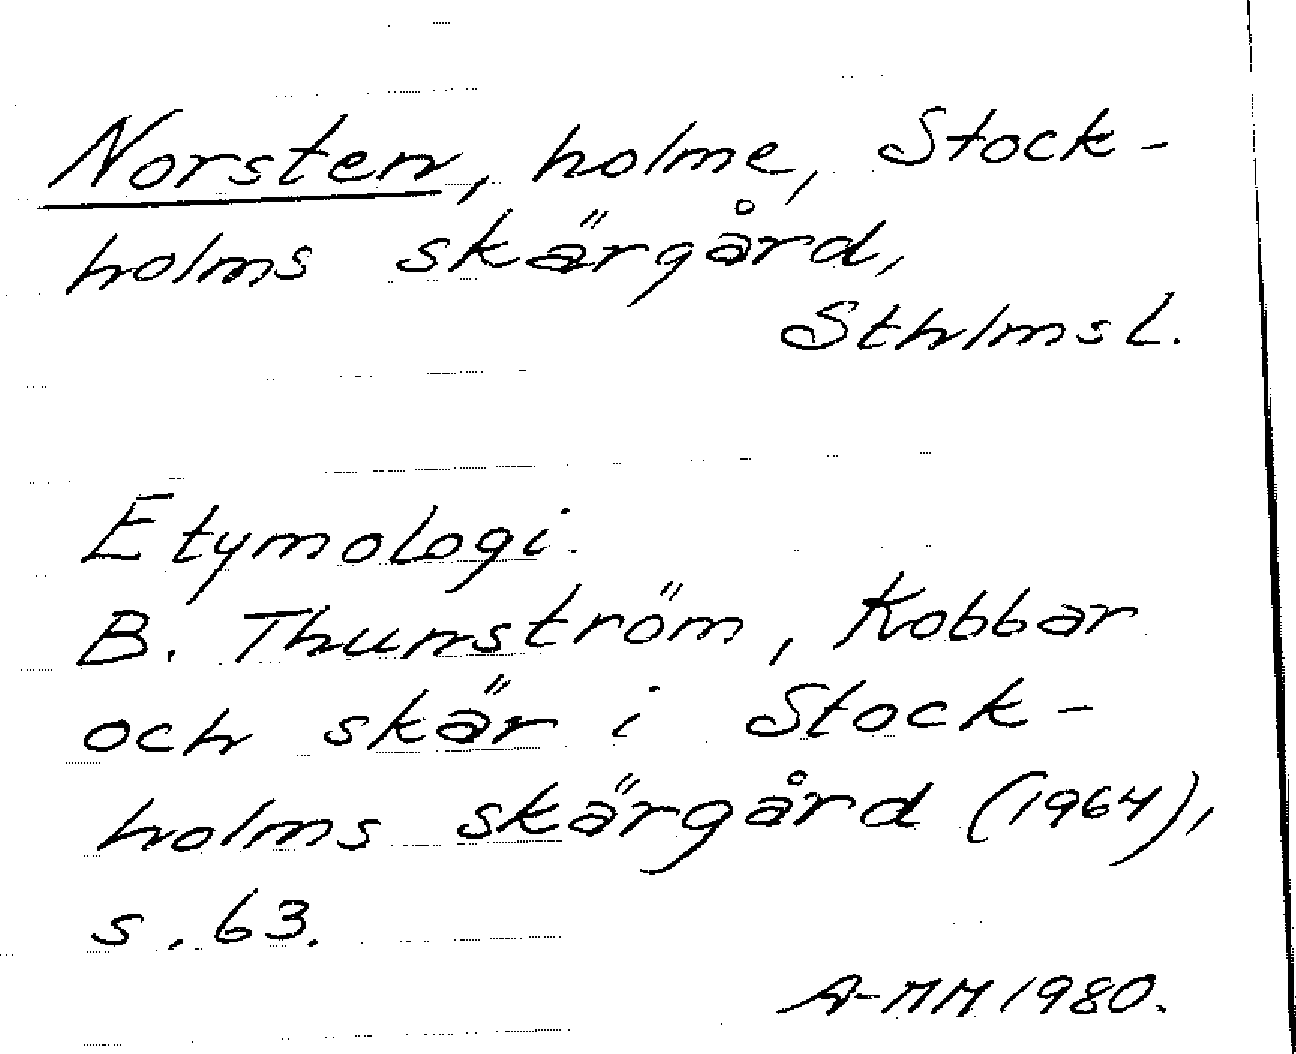 Norsten, holme, Stock-
holms skärgård,
Sthlms l.
Etymologi.
B. Thunström, Kobbar
och skär i Stock-
holms skärgård (1964),
s. 63.
A-MM 1980.